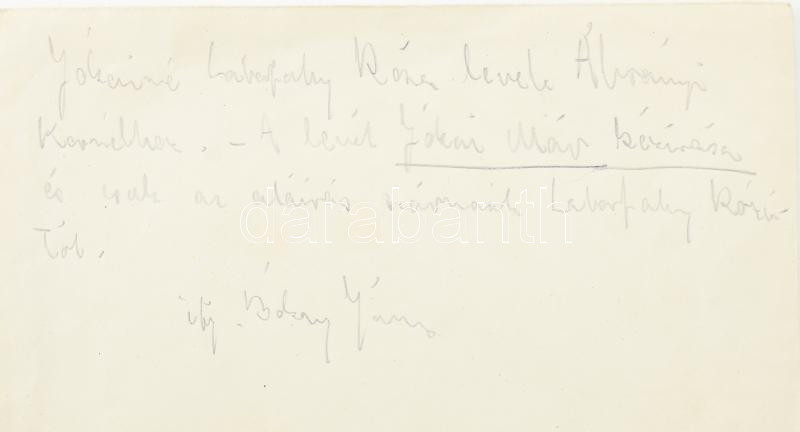 Jókainé Laborfalvy Róza levele Ábrányi
Kornélhoz. – A levél Jókai Mór kézírása
és csak az aláírás származik Laborfalvy Rózá-
tól.
ifj. Bókay János
darabanth